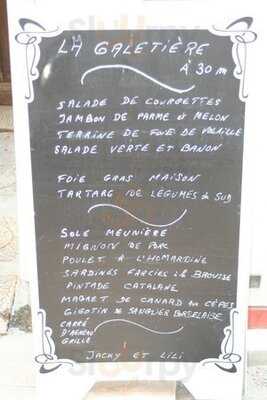 LA GALETIÈRE
À 30 m
SALADE DE COURGETTES
JAMBON DE PARME et MELON
TERRINE DE FOIE DE VOLAILLE
SALADE VERTE ET BANON
FOIE GRAS MAISON
TARTARE DE LÉGUMES du SUD
SOLE MEUNIÈRE
MIGNON DE PORC
POULET À L'HOMARDINE
SARDINES FARCIES à la BROUSSE
PINTADE CATALANE
MAGRET DE CANARD aux CÈPES
GIGOTIN de SANGLIER BORDELAISE
CARRÉ
D'AGNEAU
GRILLÉ
JACKY ET LILI